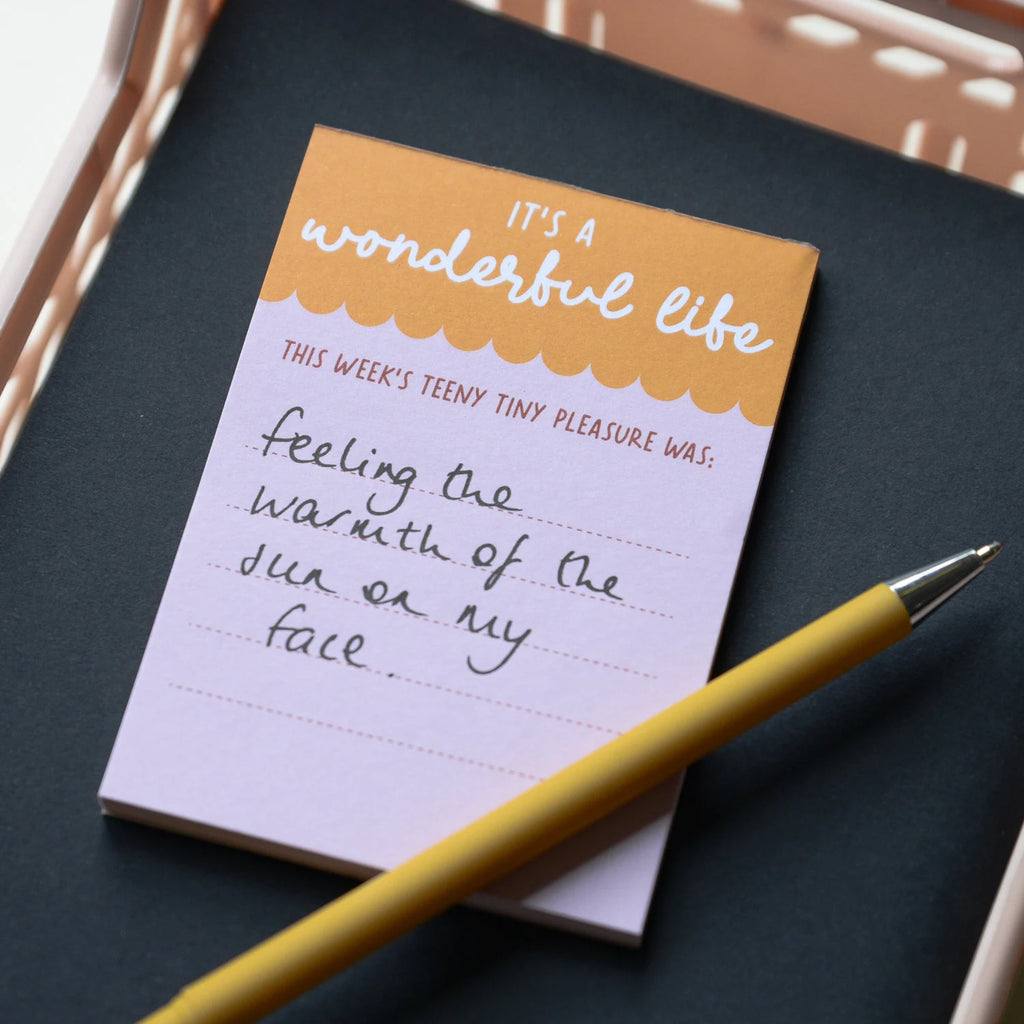 IT'S A
wonderful life
THIS WEEK'S TEENY TINY PLEASURE WAS:
feeling the
warmth of the
sun on my
face.